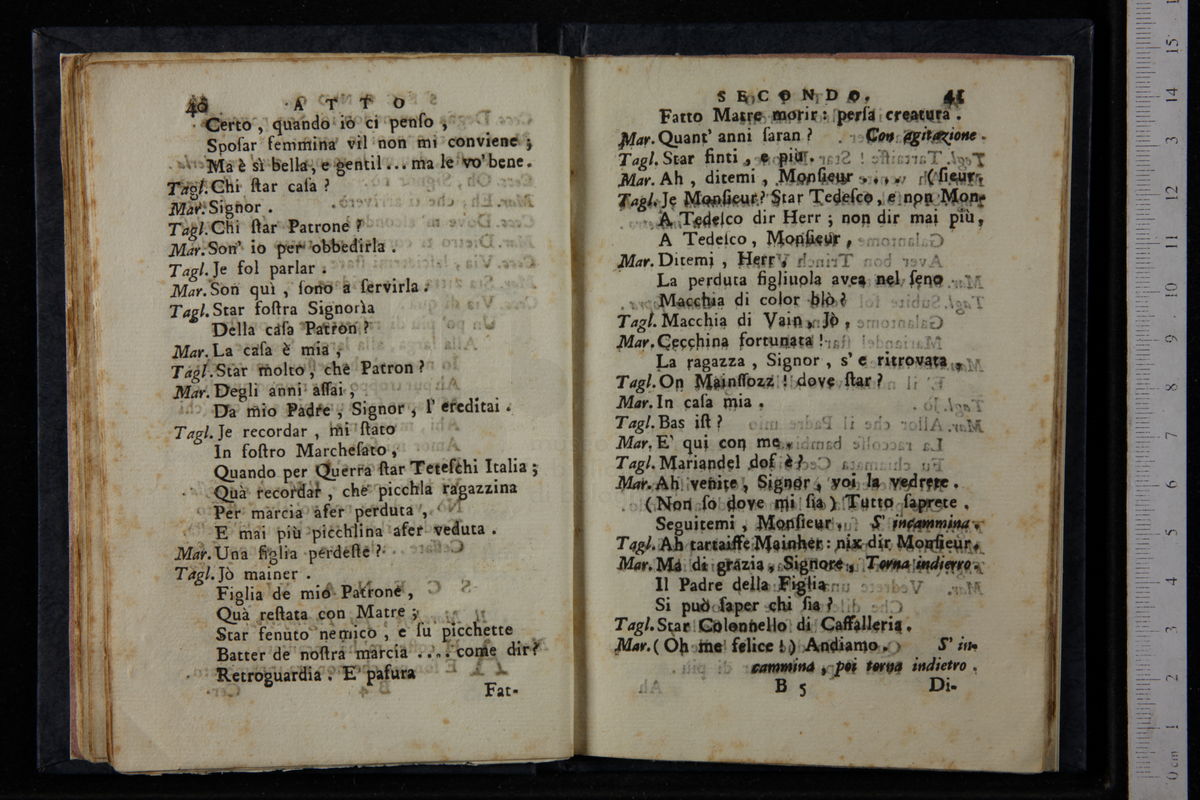 40 ATTO
Certo, quando io ci penſo,
Spoſar femmina vil non mi conviene;
Ma è sì bella, e gentil... ma le vo' bene.
Tagl. Chi ſtar caſa?
Mar. Signor.
Tagl. Chi ſtar Patrone?
Mar. Son' io per obbedirla.
Tagl. Je ſol parlar.
Mar. Son quì, ſono a ſervirla.
Tagl. Star foſtra Signorìa
Della caſa Patron?
Mar. La caſa è mia,
Tagl. Star molto, che Patron?
Mar. Degli anni aſſai,
Da mio Padre, Signor, l' ereditai.
Tagl. Je recordar, mi ſtato
In foſtro Marcheſato,
Quando per Querra ſtar Teteſchi Italia;
Quà recordar, che picchla ragazzina
Per marcia afer perduta,
E mai più picchlina afer veduta.
Mar. Una figlia perdeſte?
Tagl. Jò mainer.
Figlia de mio Patrone,
Quà reſtata con Matre;
Star fenuto nemico, e ſu picchette
Batter de noſtra marcia .... come dir?
Retroguardia. E pafura
Fat-
SECONDO. 41
Fatto Matre morir: perſa creatura.
Mar. Quant' anni ſaran? Con agitazione.
Tagl. Star finti, e più.
Mar. Ah, ditemi, Monſieur .... (ſieur.
Tagl. Je Monſieur? Star Tedeſco, e non Mon-
A Tedeſco dir Herr; non dir mai più,
A Tedeſco, Monſieur,
Mar. Ditemi, Herr,
La perduta figliuola avea nel ſeno
Macchia di color blò?
Tagl. Macchia di Vain, Jò,
Mar. Cecchina fortunata!
La ragazza, Signor, s' e ritrovata,
Tagl. On Mainſſozz! dove ſtar?
Mar. In caſa mia.
Tagl. Bas iſt?
Mar. E' qui con me.
Tagl. Mariandel dof è?
Mar. Ah venite, Signor, voi la vedrete.
(Non ſo dove mi ſia) Tutto ſaprete.
Seguitemi, Monſieur. S' incammina.
Tagl. Ah tartaiffe Mainher: nix dir Monſieur.
Mar. Ma di grazia, Signore, Torna indietro.
Il Padre della Figlia
Si può ſaper chi ſia?
Tagl. Star Colonnello di Caffalleria.
Mar. (Oh me felice!) Andiamo. S' in-
cammina, poi torna indietro.
B 5 Di-